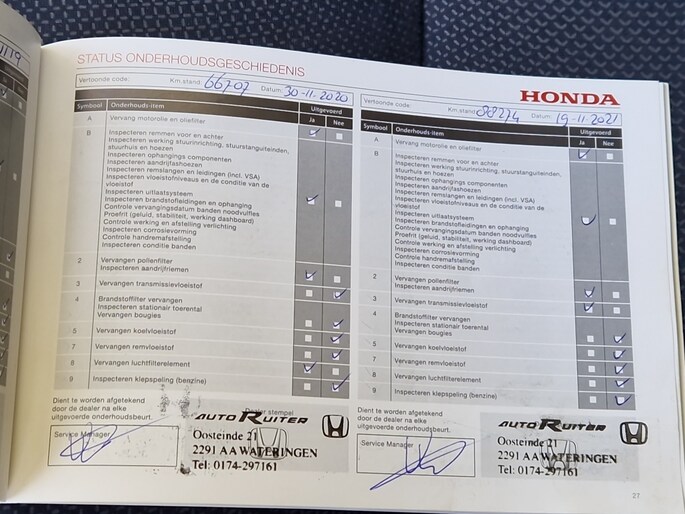 1119
STATUS ONDERHOUDSGESCHIEDENIS
Vertoonde code: Km.stand: 66707 Datum: 30-11-2020
Symbool Onderhouds-item Uitgevoerd
Ja Nee
A Vervang motorolie en oliefilter
B Inspecteren remmen voor en achter
Inspecteren werking stuurinrichting, stuurstanguiteinden,
stuurhuis en hoezen
Inspecteren ophangings componenten
Inspecteren aandrijfashoezen
Inspecteren remslangen en leidingen (incl. VSA)
Inspecteren vloeistofniveaus en de conditie van de
vloeistof
Inspecteren uitlaatsysteem
Inspecteren brandstofleidingen en ophanging
Controle vervangingsdatum banden noodvulfles
Proefrit (geluid, stabiliteit, werking dashboard)
Controle werking en afstelling verlichting
Inspecteren corrosievorming
Controle handremafstelling
Inspecteren conditie banden
2 Vervangen pollenfilter
Inspecteren aandrijfriemen
3 Vervangen transmissievloeistof
4 Brandstoffilter vervangen
Inspecteren stationair toerental
Vervangen bougies
5 Vervangen koelvloeistof
7 Vervangen remvloeistof
8 Vervangen luchtfilterelement
9 Inspecteren klepspeling (benzine)
Dient te worden afgetekend
door de dealer na elke
uitgevoerde onderhoudsbeurt.
Service Manager
Dealer stempel
AUTO RUITER
Oosteinde 21
2291 AA WATERINGEN
Tel: 0174-297161
HONDA
Vertoonde code: Km.stand: 88274 Datum: 19-11-2021
Symbool Onderhouds-item Uitgevoerd
Ja Nee
A Vervang motorolie en oliefilter
B Inspecteren remmen voor en achter
Inspecteren werking stuurinrichting, stuurstanguiteinden,
stuurhuis en hoezen
Inspecteren ophangings componenten
Inspecteren aandrijfashoezen
Inspecteren remslangen en leidingen (incl. VSA)
Inspecteren vloeistofniveaus en de conditie van de
vloeistof
Inspecteren uitlaatsysteem
Inspecteren brandstofleidingen en ophanging
Controle vervangingsdatum banden noodvulfles
Proefrit (geluid, stabiliteit, werking dashboard)
Controle werking en afstelling verlichting
Inspecteren corrosievorming
Controle handremafstelling
Inspecteren conditie banden
2 Vervangen pollenfilter
Inspecteren aandrijfriemen
3 Vervangen transmissievloeistof
4 Brandstoffilter vervangen
Inspecteren stationair toerental
Vervangen bougies
5 Vervangen koelvloeistof
7 Vervangen remvloeistof
8 Vervangen luchtfilterelement
9 Inspecteren klepspeling (benzine)
Dient te worden afgetekend
door de dealer na elke
uitgevoerde onderhoudsbeurt.
Service Manager
AUTO RUITER
Oosteinde 21
2291 AA WATERINGEN
Tel: 0174-297161
27